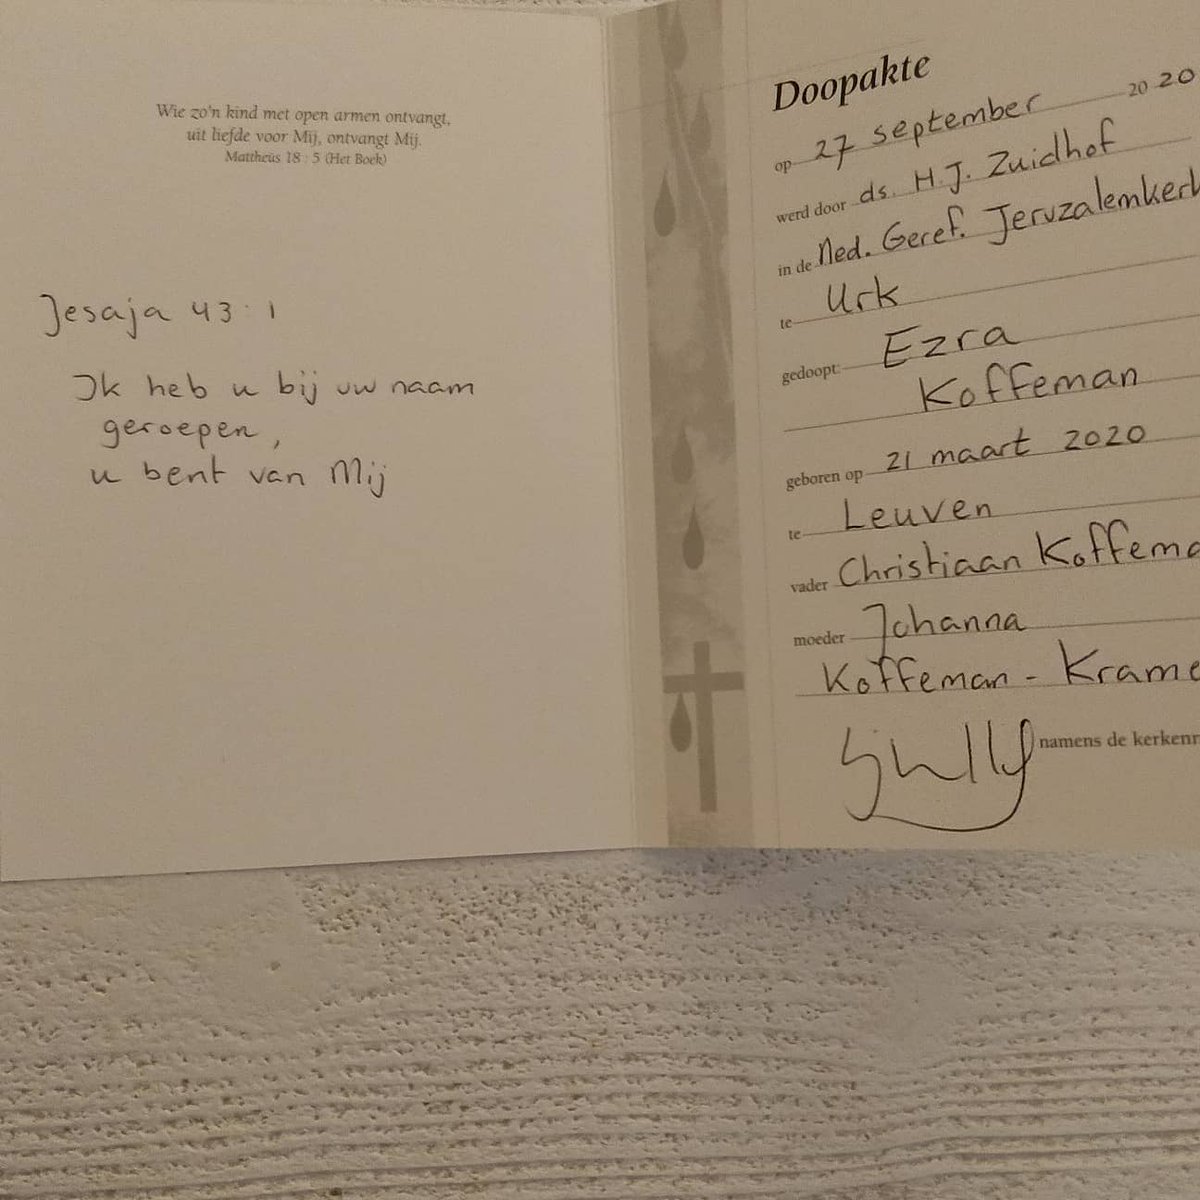 Wie zo'n kind met open armen ontvangt,
uit liefde voor Mij, ontvangt Mij.
Mattheüs 18 : 5 (Het Boek)
Jesaja 43 : 1
Ik heb u bij uw naam
geroepen,
u bent van Mij
Doopakte
op 27 september 20 20
werd door ds. H.J. Zuidhof
in de Ned. Geref. Jeruzalemkerk
te Urk
gedoopt: Ezra
Koffeman
geboren op 21 maart 2020
te Leuven
vader Christiaan Koffema
moeder Johanna
Koffeman - Krame
namens de kerkenr